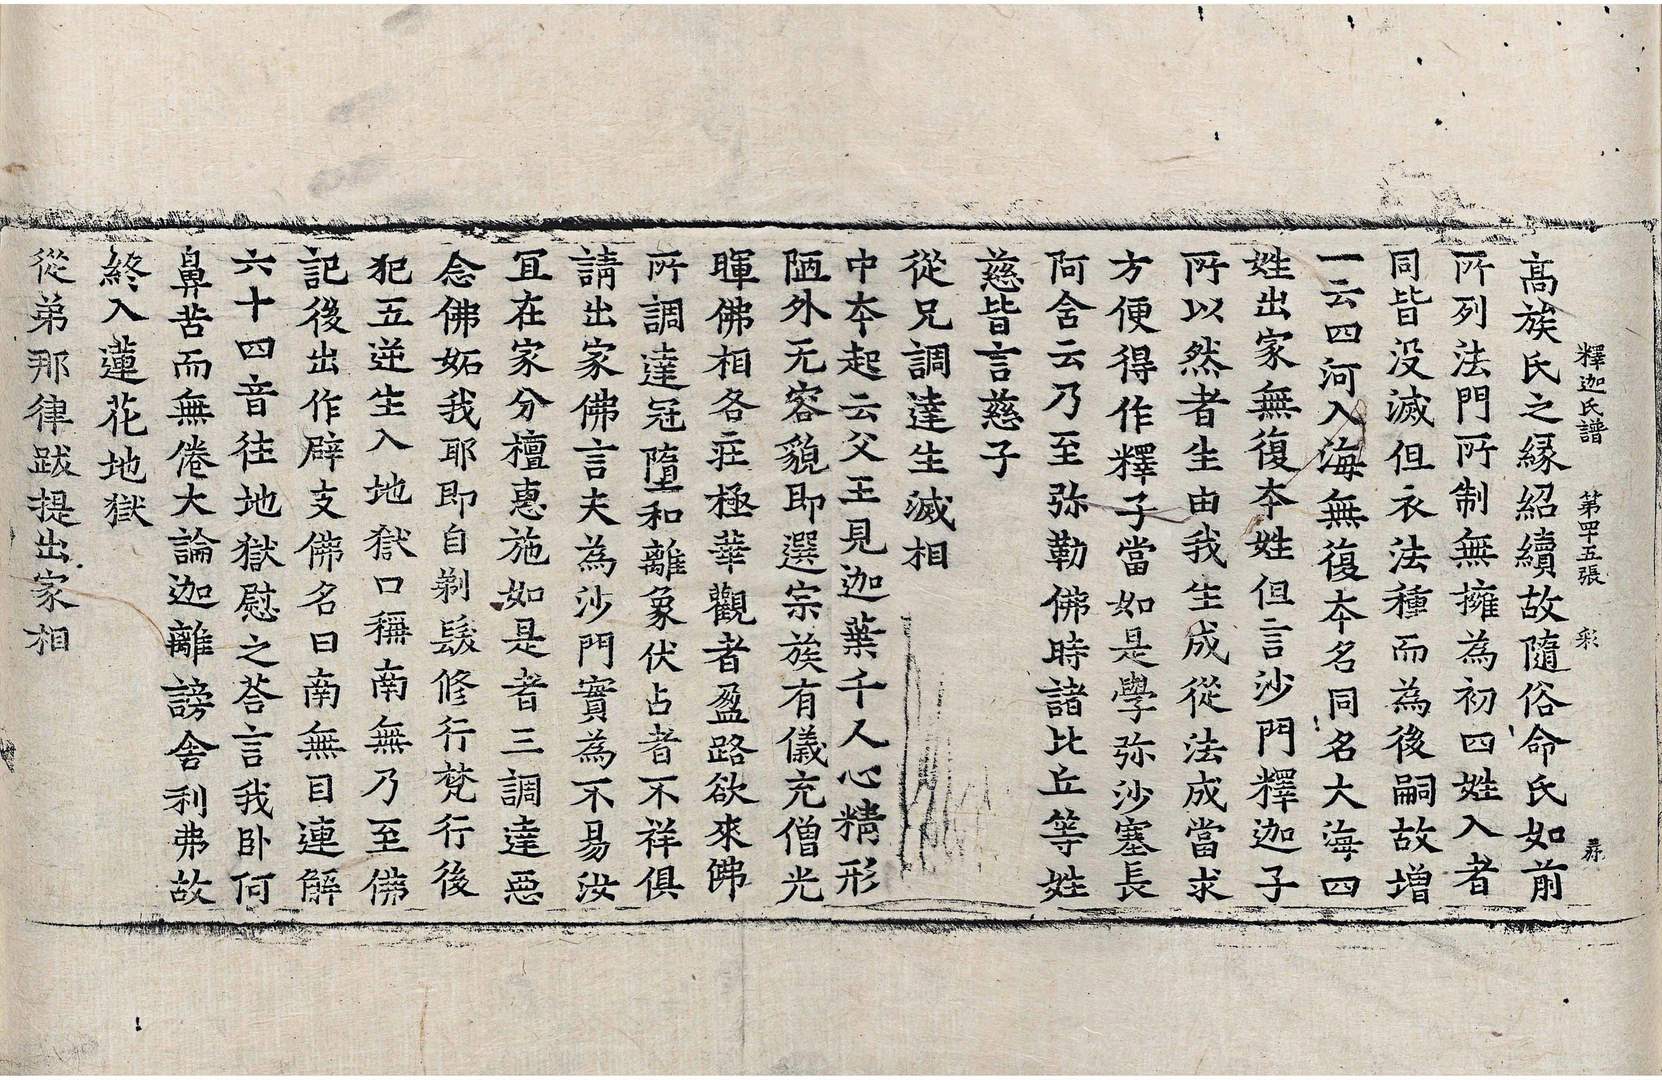 釋迦氏譜 第四十五張 彩
高族氏之緣紹續故隨俗命氏如前
所列法門所制無擁為初四姓入者
同皆没滅但衣法種而為後嗣故増
一云四河入海無復夲名同名大海四
姓出家無復夲姓但言沙門釋迦子
所以然者生由我生成從法成當求
方便得作釋子當如是學弥沙塞長
阿舍云乃至弥勒佛時諸比丘等姓
慈皆言慈子
從兄調達生滅相
中夲起云父王見迦葉千人心精形
陋外无容貌即選宗族有儀充僧光
暉佛相各莊極華觀者盈路欲來佛
所調達冠墮和離象伏占者不祥俱
請出家佛言夫為沙門實為不易汝
冝在家分檀惠施如是者三調達惡
念佛妬我耶即自剃髮修行梵行後
犯五逆生入地獄口稱南無乃至佛
記後出作辟支佛名曰南無目連解
六十四音往地獄慰之荅言我卧何
鼻苦而無倦大論迦離謗舍利弗故
終入蓮花地獄
從弟那律跋提出家相